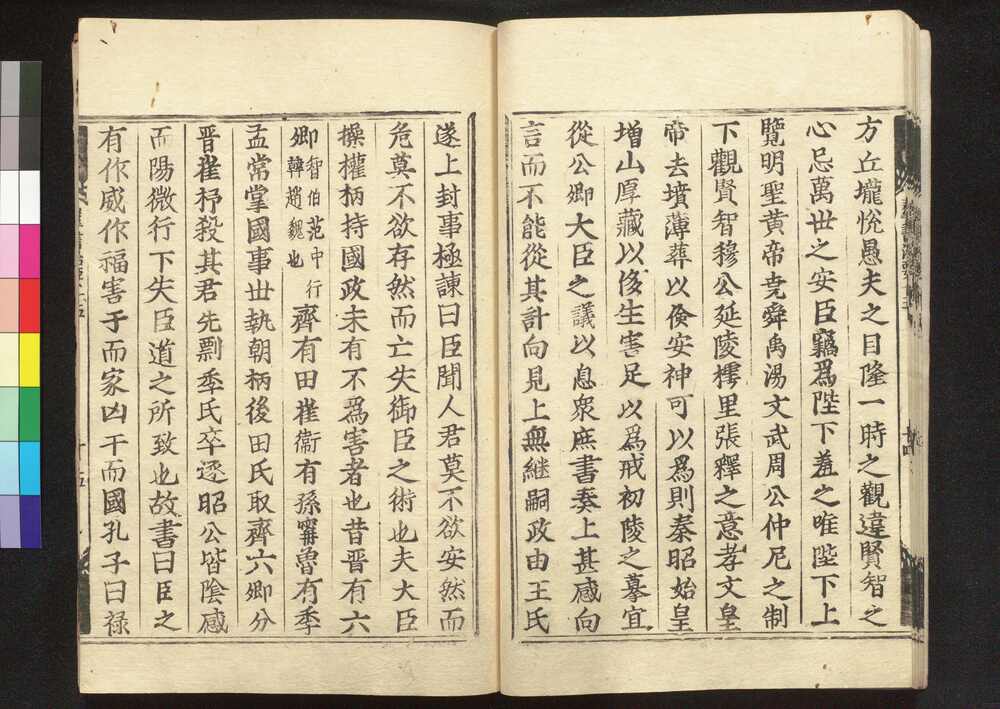 方丘壠悅愚夫之目隆一時之觀違賢智之
心忌萬世之安臣竊爲陛下羞之唯陛下上
覽明聖黃帝堯舜禹湯文武周公仲尼之制
下觀賢智穆公延陵樗里張釋之意孝文皇
帝去墳薄葬以儉安神可以爲則秦昭始皇
增山厚藏以侈生害足以爲戒初陵之摹宜
從公卿大臣之議以息衆庶書奏上甚感向
言而不能從其計向見上無継嗣政由王氏
遂上封事極諫曰臣聞人君莫不欲安然而
危莫不欲存然而亡失御臣之術也夫大臣
操權柄持國政未有不爲害者也昔晋有六
卿智伯范中行韓趙魏也齊有田崔衛有孫甯魯有季
孟常掌國事世執朝柄後田氏取齊六卿分
晋崔杼殺其君先剽季氏卒逐昭公皆陰盛
而陽微行下失臣道之所致也故書曰臣之
有作威作福害于而家凶于而國孔子曰禄